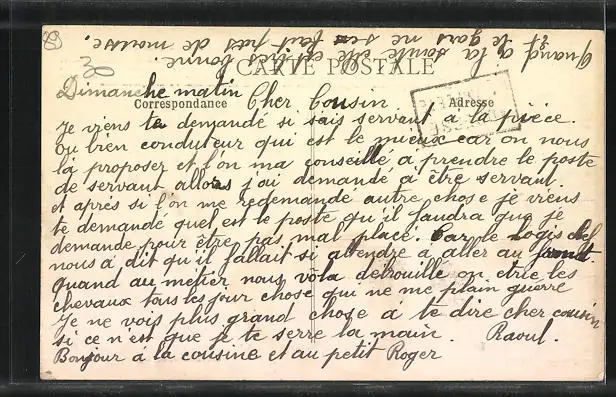 Quand a la sante elle est toujours bonne.
le gars ne se fait pas de mousse.
88
CARTE POSTALE
Correspondance
Adresse
Dimanche matin Cher Cousin
Je viens te demandé si sais servant à la pièce.
Ou bien conduteur qui est le mieux car on nous
là proposer et l'on ma conseillé à prendre le poste
de servant allors j'ai demandé à être servant.
et après si l'on me redemande autre chose je viens
te demandé quel est le poste qu'il faudra que je
demande pour être pas mal placé. Car le logis chef
nous a dit qu'il fallait si attendre à aller au front
quand au métier nous voila detrouille on etrie les
chevaux tous les jour chose qui ne me plain guerre
Je ne vois plus grand chose à te dire cher cousin
si ce n'est que je te serre la main. Raoul.
Bonjour à la cousine et au petit Roger